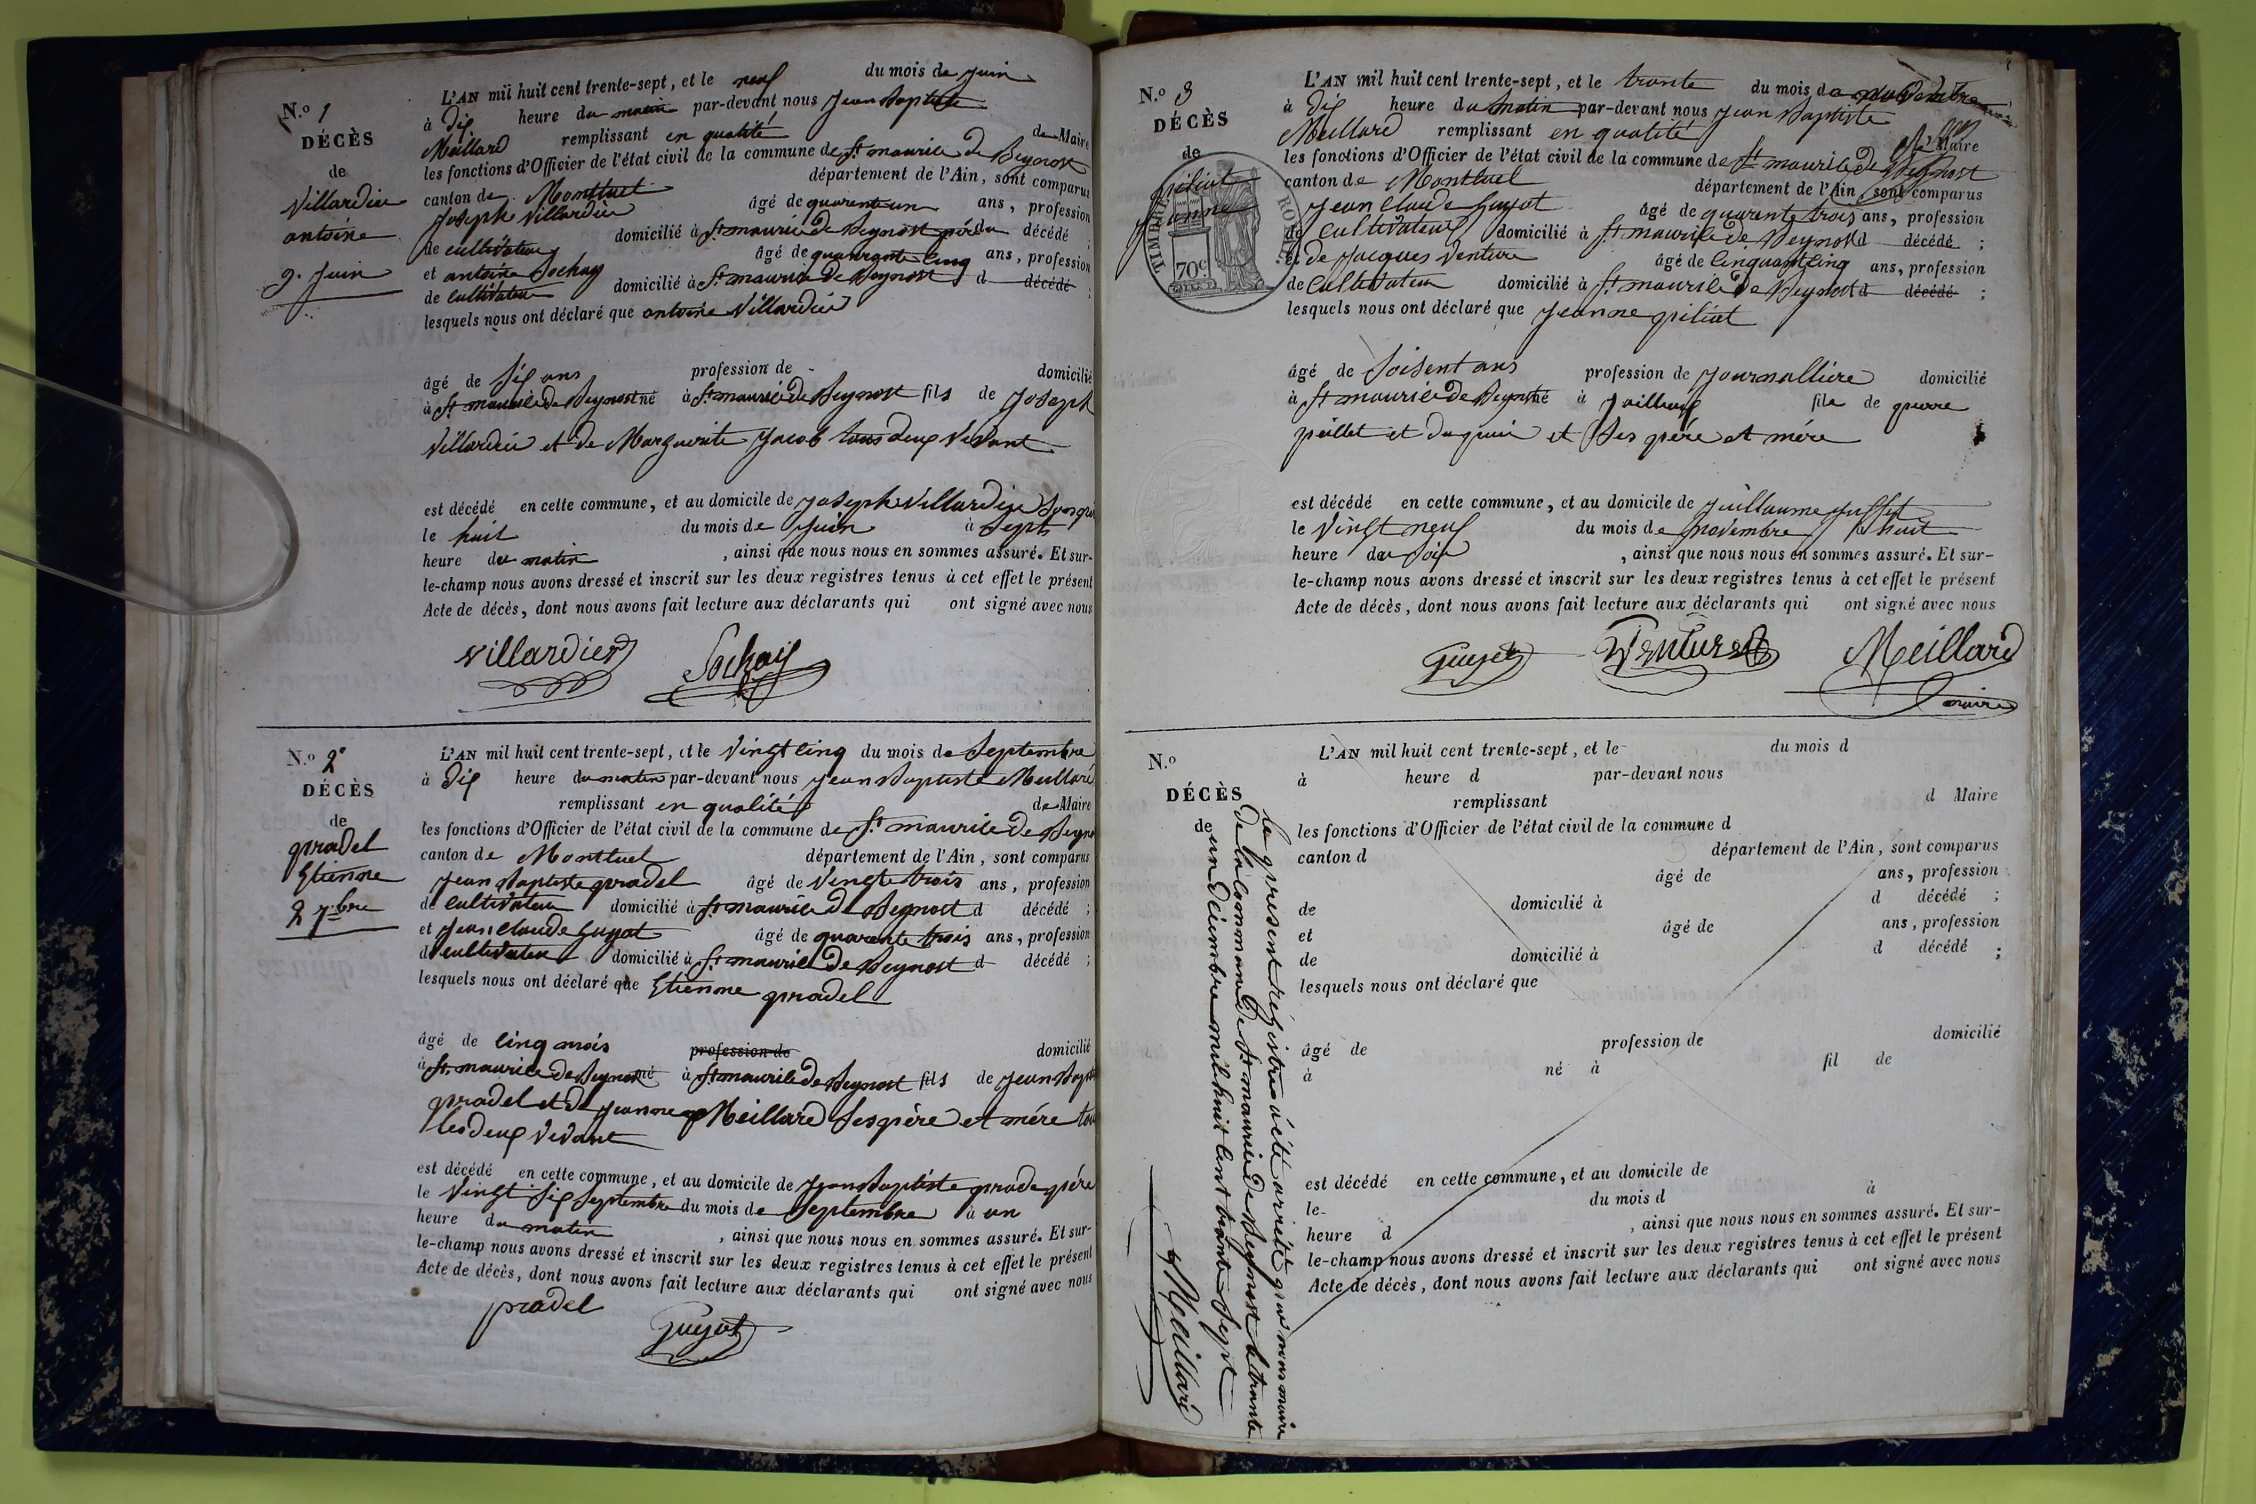 N.º 1
DÉCÈS
de
Villardier
antoine
9. Juin
L'AN mil huit cent trente-sept, et le neuf du mois de Juin
à Dix heure du matin par-devant nous Jean Baptiste
Meillard remplissant en qualité de Maire
les fonctions d'Officier de l'état civil de la commune de St maurice de Beynost
canton de Montluel département de l'Ain, sont comparus
Joseph Villardier âgé de quarente un ans, profession
de cultivateur domicilié à St maurice de Beynost père du décédé ;
et antoine Sochay âgé de quarrante cinq ans, profession
de cultivateur domicilié à St maurice de Beynost d décédé ;
lesquels nous ont déclaré que antoine Villardier
âgé de Six ans profession de domicilié
à St maurice de Beynost né à St maurice de Beynost fils de Joseph
Villardier et de Marguerite Jacob tous deux Vivant
est décédé en cette commune, et au domicile de Joseph Villardier Son père
le huit du mois de Juin à Sept
heure du matin , ainsi que nous nous en sommes assuré. Et sur-
le-champ nous avons dressé et inscrit sur les deux registres tenus à cet effet le présent
Acte de décès, dont nous avons fait lecture aux déclarants qui ont signé avec nous
Villardier Sochay
N.º 2
DÉCÈS
de
pradel
Etienne
2 7.bre
L'AN mil huit cent trente-sept, et le Vingt cinq du mois de Septembre
à Dix heure du matin par-devant nous Jean Baptiste Meillard
remplissant en qualité de Maire
les fonctions d'Officier de l'état civil de la commune de St maurice de Beyno
canton de Montluel département de l'Ain, sont comparus
Jean Baptiste pradel âgé de Vingte trois ans, profession
de cultivateur domicilié à St maurice de Beynost d décédé ;
et Jean Claude Guyot âgé de quarente trois ans, profession
de cultivateur domicilié à St maurice de Beynost d décédé ;
lesquels nous ont déclaré que Etienne pradel
âgé de cinq mois profession de domicilié
à St maurice de Beynost né à St maurice de Beynost fils de Jean Bapt
pradel et de Jeanne Meillard Ses père et mére tou
les deux Vivant
est décédé en cette commune, et au domicile de Jean Baptiste pradel père
le Vingt Six Septembre du mois de Septembre à un
heure du matin , ainsi que nous nous en sommes assuré. Et sur-
le-champ nous avons dressé et inscrit sur les deux registres tenus à cet effet le présent
Acte de décès, dont nous avons fait lecture aux déclarants qui ont signé avec nous
pradel Guyot
N.º 3
DÉCÈS
de
Jeanne
TIMBRE ROYAL
70c
L'AN mil huit cent trente-sept, et le trante du mois de novembre
à Dix heure du matin par-devant nous Jean Baptiste
Meillard remplissant en qualité de Maire
les fonctions d'Officier de l'état civil de la commune de St maurice de Beynost
canton de Montluel département de l'Ain, sont comparus
Jean Claude Guyot âgé de quarente trois ans, profession
de cultivateur domicilié à St maurice de Beynost d décédé ;
et de Jacques Venture âgé de cinquante cinq ans, profession
de cultivateur domicilié à St maurice de Beynost d décédé ;
lesquels nous ont déclaré que Jeanne
âgé de Soisent ans profession de Journalliere domicilié
à St maurice de Beynost né à file de pierre
et et Ses père et mére
est décédé en cette commune, et au domicile de Juillaume
le Vingt neuf du mois de novembre à huit
heure du Soir , ainsi que nous nous en sommes assuré. Et sur-
le-champ nous avons dressé et inscrit sur les deux registres tenus à cet effet le présent
Acte de décès, dont nous avons fait lecture aux déclarants qui ont signé avec nous
Guyot Venture Meillard
maire
N.º
DÉCÈS
de
L'AN mil huit cent trente-sept, et le du mois d
à heure d par-devant nous
remplissant d Maire
les fonctions d'Officier de l'état civil de la commune d
canton d département de l'Ain, sont comparus
âgé de ans, profession
de domicilié à d décédé ;
et âgé de ans, profession
de domicilié à d décédé ;
lesquels nous ont déclaré que
âgé de profession de domicilié
à né à fil de
est décédé en cette commune, et au domicile de
le du mois d à
heure d , ainsi que nous nous en sommes assuré. Et sur-
le-champ nous avons dressé et inscrit sur les deux registres tenus à cet effet le présent
Acte de décès, dont nous avons fait lecture aux déclarants qui ont signé avec nous
le present registre a été arrêté par nous maire
de la Commune de St maurice de Beynost le trante
un décembre mil huit cent trante Sept
Meillard